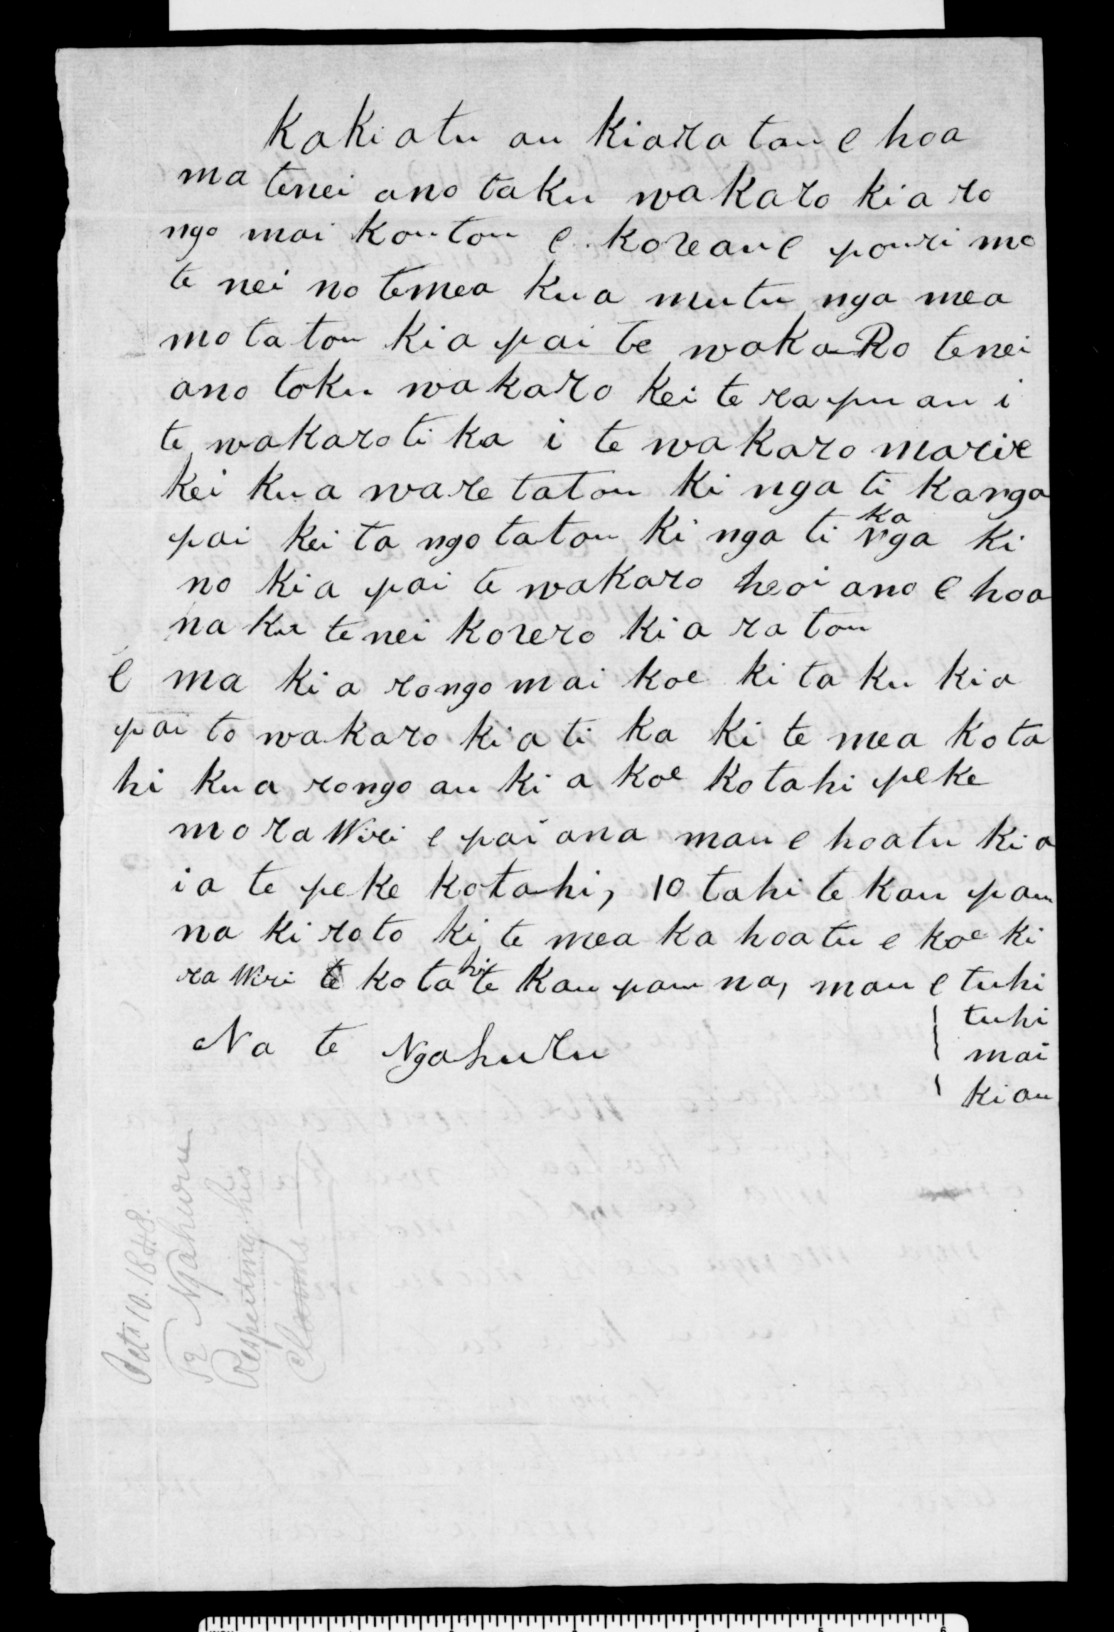 Kakiatu au Kiaratou e hoa
ma tenei ano taku wakaro kia ro
ngo mai Koutou e Koreau e pouri mo
te nei no temea Kua mutu nga mea
mo ta tou Kia pai te wakaRo tenei
ano toku wakaro Kei te rapu au i
te wakaro ti ka i te wakaro marire
Kei Kua ware tatou Ki nga ti Kanga
pai Kei ta ngo tatou Ki nga ti ka nga Ki
no Kia pai te wakaro heoi ano e hoa
na Ku te nei Korero Kia ra tou
e ma Kia rongo mai Koe Ki ta Ku Kia
pai to wakaro Kia ti Ka Ki te mea Kota
hi Kua rongo au Ki a Koe Kotahi peke
mo ra Wiri e pai ana mau e hoatu Kia
ia te peke Kotahi, 10 tahi te Kau pau
na Ki roto Ki te mea Ka hoatu e Koe Ki
ra Wiri te Kotahi te Kau pau na, mau e tuhi
tuhi
mai
Ki au
Na te Ngahuru
10. 1848.
Te Ngahuru
Respecting his
Claims